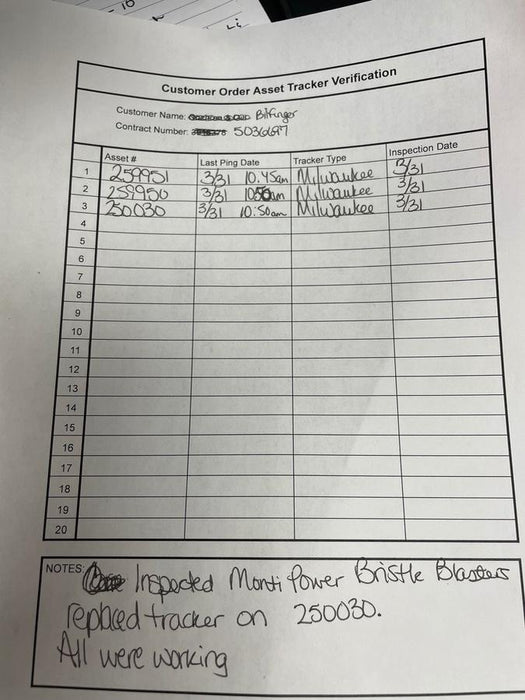 Customer Order Asset Tracker Verification
Customer Name: Bilfinger
Contract Number: 5036697
Asset # Last Ping Date Tracker Type Inspection Date
1 259951 3/31 10.45am Milwaukee 3/31
2 259950 3/31 1050am Milwaukee 3/31
3 250030 3/31 10:50am Milwaukee 3/31
4
5
6
7
8
9
10
11
12
13
14
15
16
17
18
19
20
NOTES: Inspected Monti Power Bristle Blasters
replaced tracker on 250030.
All were working